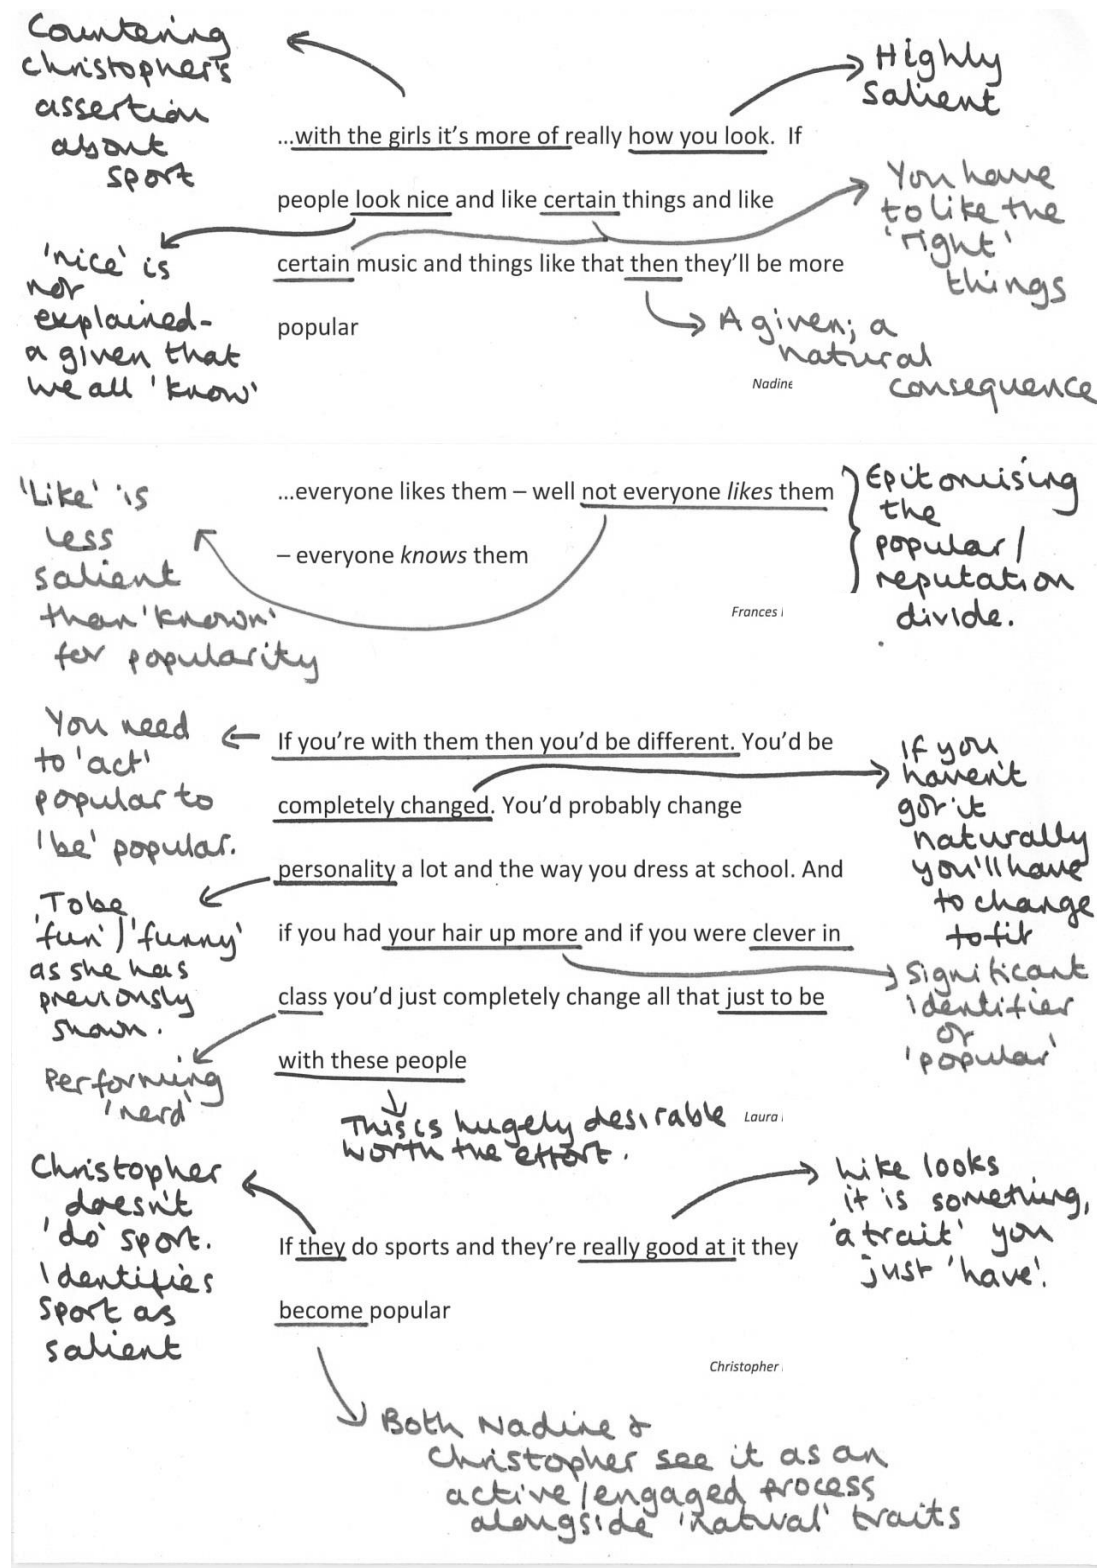 Countering
christopher's
assertion
about
sport
Highly
Salient
...with the girls it's more of really how you look. If
people look nice and like certain things and like
certain music and things like that then they'll be more
popular
You have
to like the
'right'
things
'nice' is
not
explained-
a given that
we all 'know'
A given; a
natural
consequence
Nadine
'Like' is
less
salient
than 'known'
for popularity
...everyone likes them – well not everyone likes them
– everyone knows them
Epitomising
the
popular/
reputation
divide.
Frances
You need
to 'act'
popular to
'be' popular.
If you're with them then you'd be different. You'd be
completely changed. You'd probably change
personality a lot and the way you dress at school. And
if you had your hair up more and if you were clever in
class you'd just completely change all that just to be
with these people
If you
haven't
got it
naturally
you'll have
to change
to fit
Significant
identifier
of
'popular'
To be
'fun'/'funny'
as she has
previously
shown.
Performing
'nerd'
This is hugely desirable
worth the effort.
Laura
Christopher
doesn't
'do' sport.
Identifies
sport as
salient
If they do sports and they're really good at it they
become popular
Like looks
it is something,
'a trait' you
just 'have'.
Christopher
Both Nadine &
Christopher see it as an
active/engaged process
alongside 'natural' traits